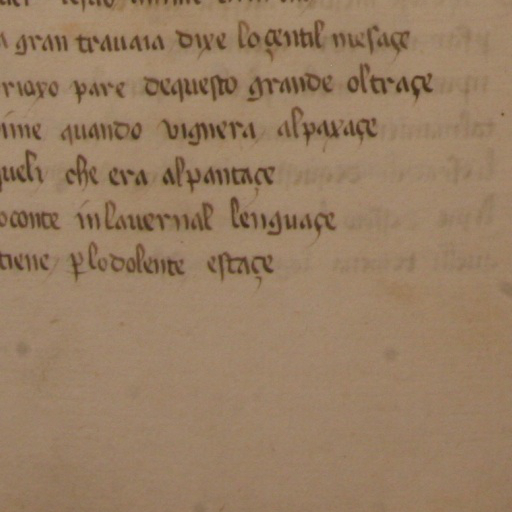 gran travaia dixe loçentil mesaçe
rioxo pare dequesto grande oltraçe
ime quando vignera alpaxaçe
queli che era alpantaçe
oconte inlavernal lenguaçe
tiene ꝑlodolente estaçe